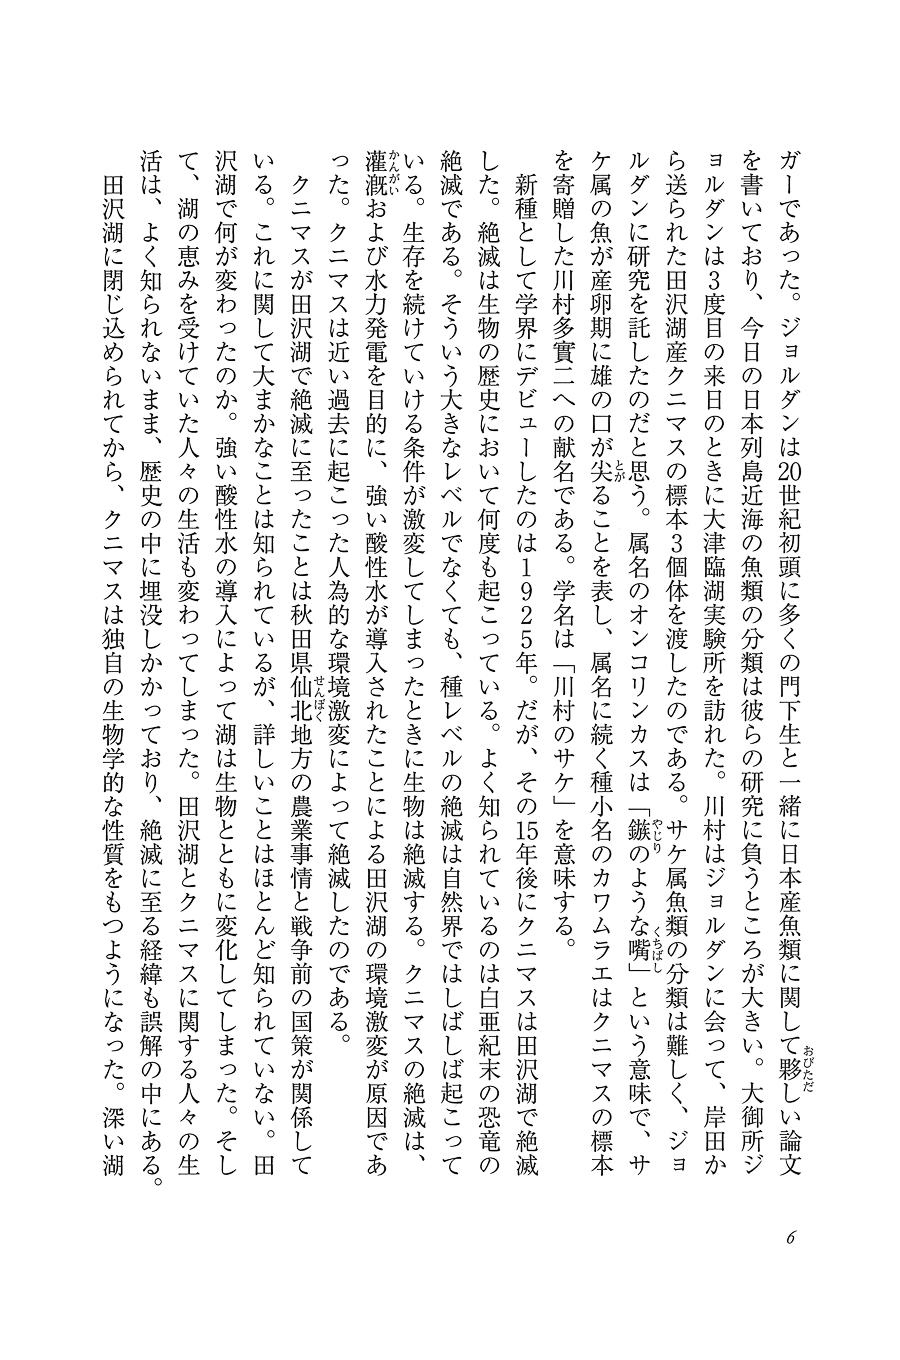 ガーであった。ジョルダンは20世紀初頭に多くの門下生と一緒に日本産魚類に関して夥しい論文
を書いており、今日の日本列島近海の魚類の分類は彼らの研究に負うところが大きい。大御所ジ
ョルダンは3度目の来日のときに大津臨湖実験所を訪れた。川村はジョルダンに会って、岸田か
ら送られた田沢湖産クニマスの標本3個体を渡したのである。サケ属魚類の分類は難しく、ジョ
ルダンに研究を託したのだと思う。属名のオンコリンカスは「鏃のような嘴」という意味で、サ
ケ属の魚が産卵期に雄の口が尖ることを表し、属名に続く種小名のカワムラエはクニマスの標本
を寄贈した川村多實二への献名である。学名は「川村のサケ」を意味する。
新種として学界にデビューしたのは1925年。だが、その15年後にクニマスは田沢湖で絶滅
した。絶滅は生物の歴史において何度も起こっている。よく知られているのは白亜紀末の恐竜の
絶滅である。そういう大きなレベルでなくても、種レベルの絶滅は自然界ではしばしば起こって
いる。生存を続けていける条件が激変してしまったときに生物は絶滅する。クニマスの絶滅は、
灌漑および水力発電を目的に、強い酸性水が導入されたことによる田沢湖の環境激変が原因であ
った。クニマスは近い過去に起こった人為的な環境激変によって絶滅したのである。
クニマスが田沢湖で絶滅に至ったことは秋田県仙北地方の農業事情と戦争前の国策が関係して
いる。これに関して大まかなことは知られているが、詳しいことはほとんど知られていない。田
沢湖で何が変わったのか。強い酸性水の導入によって湖は生物とともに変化してしまった。そし
て、湖の恵みを受けていた人々の生活も変わってしまった。田沢湖とクニマスに関する人々の生
活は、よく知られないまま、歴史の中に埋没しかかっており、絶滅に至る経緯も誤解の中にある。
田沢湖に閉じ込められてから、クニマスは独自の生物学的な性質をもつようになった。深い湖
おびただ
とが
やじり
くちばし
かんがい
せんぼく
6